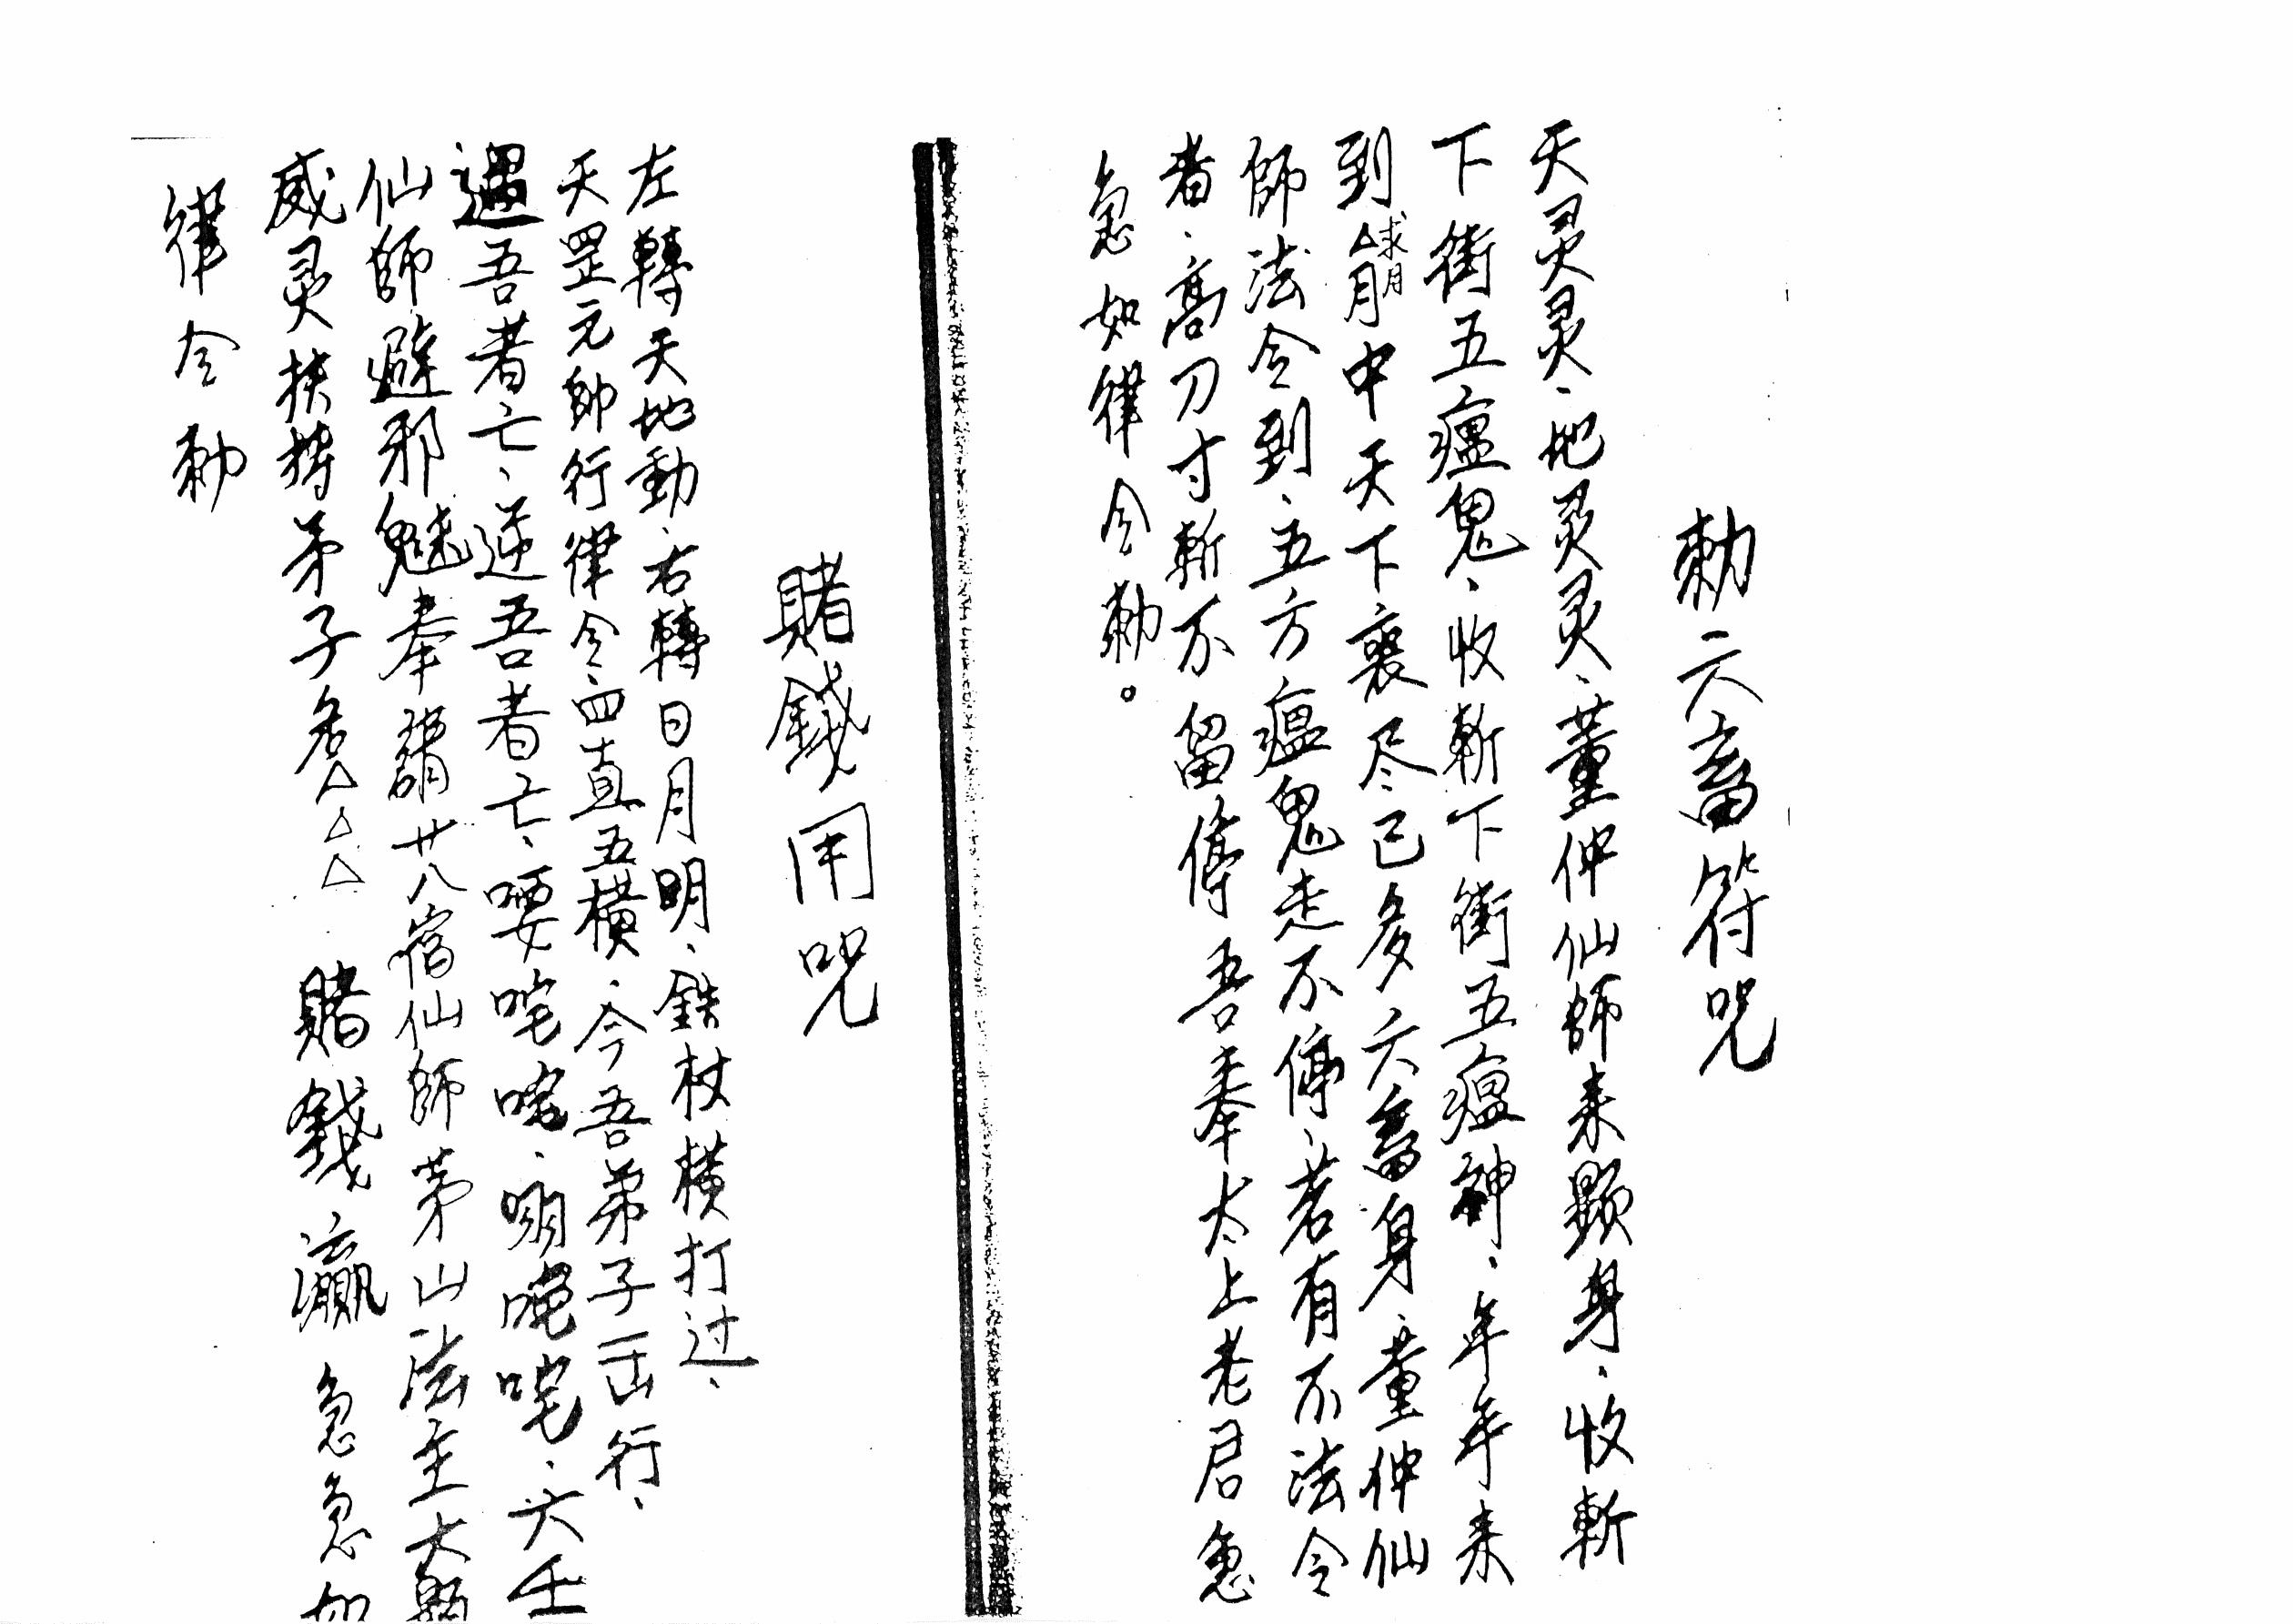 勅六畜符咒
天灵灵、地灵灵、董仲仙师来顕身、收斬
下街五瘟鬼、收斬下街五瘟神、年年来
到中天下衰尽已多六畜身、董仲仙
師法令到、五方瘟鬼走不停、若有不法令
者、高刀寸斬不留停吾奉太上老君急
急如律令勅。
賭錢用咒
左轉天地動、右轉日月明、鉄杖横打过、
天罡元帥行律令、四直五横、今吾弟子行、
遇吾者亡、逆吾者亡、六壬
仙師避邪魅奉廿八宿仙師茅山法主大顕
威灵扶持弟子名△△△ 賭錢瀛 急急如
律令勅